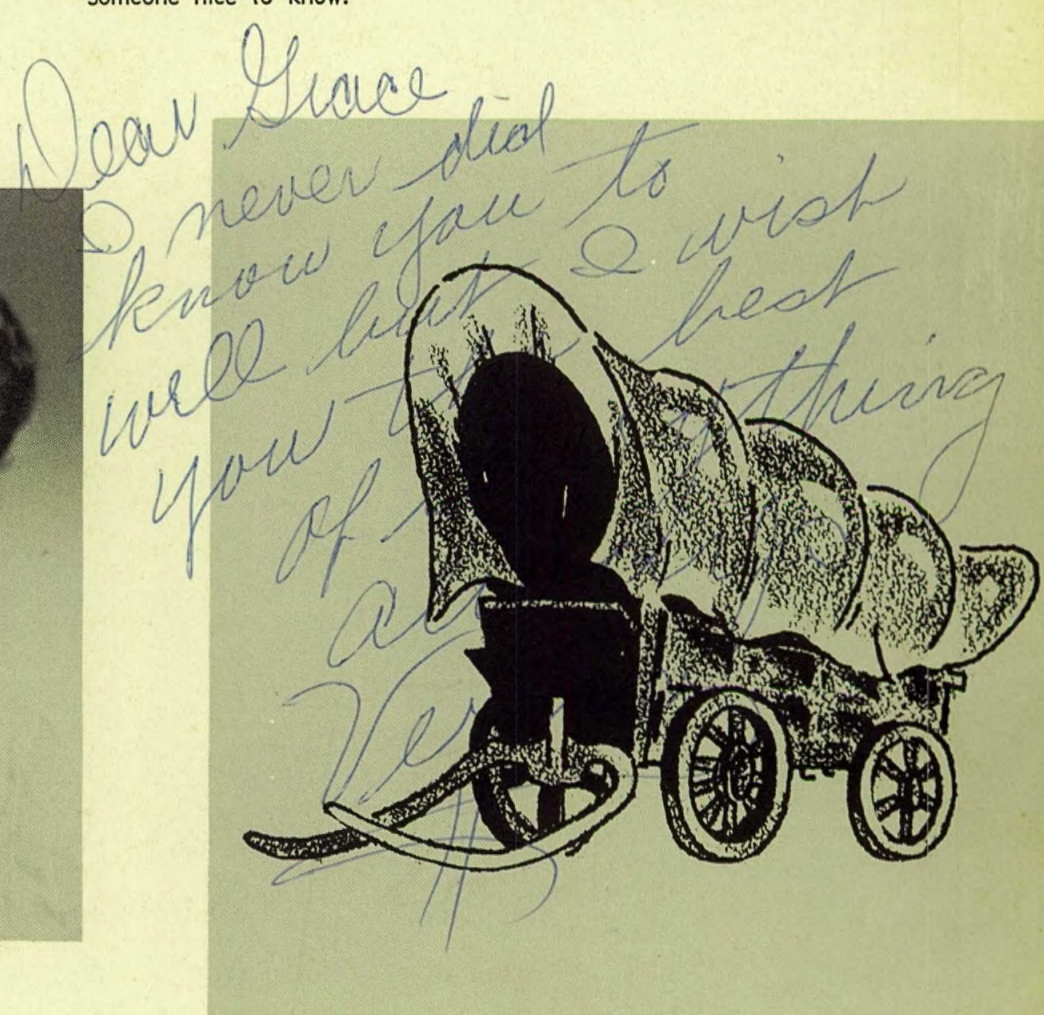 someone nice to know.
Dear Grace
I never did
know you to
well but I wish
you the best
of thing
Ver